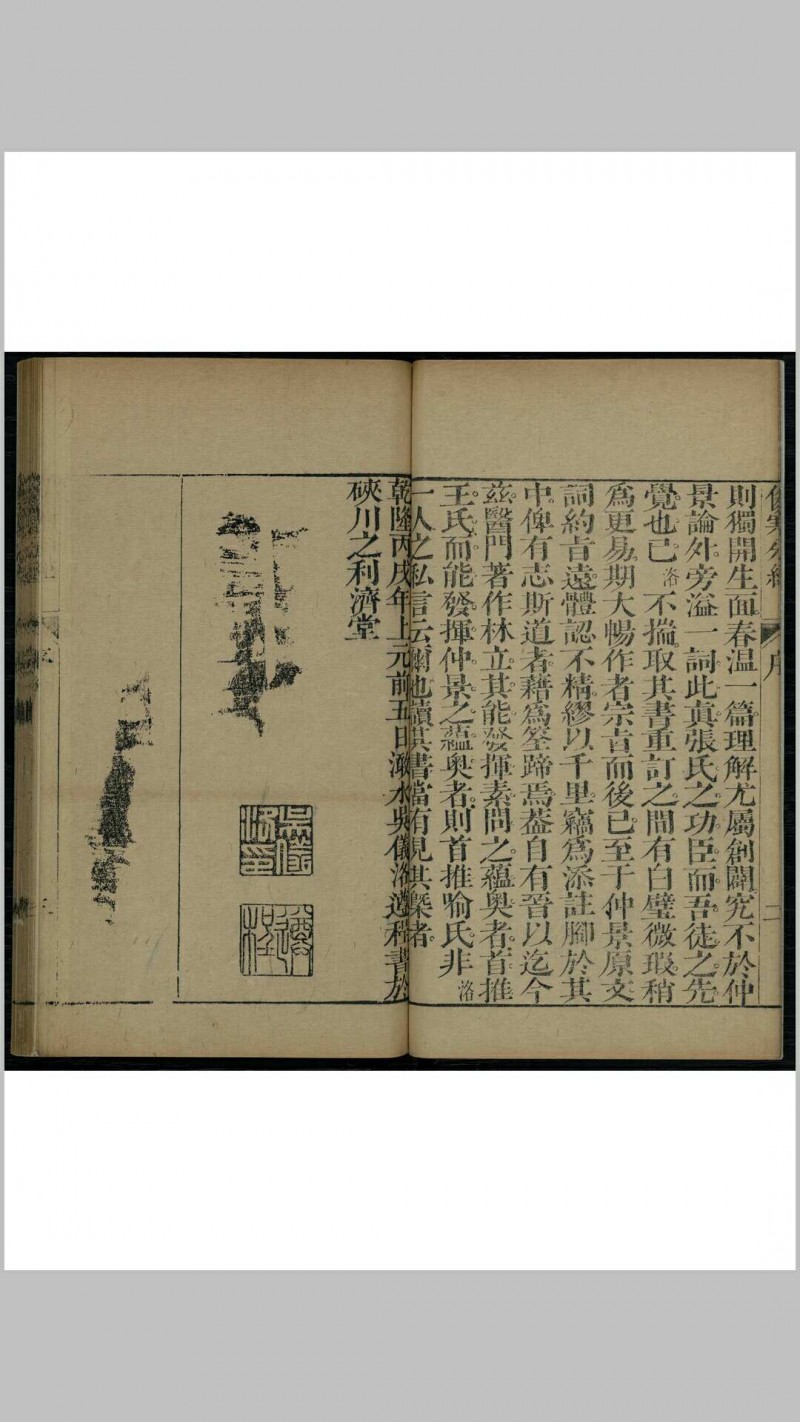 則獨開生面春温一篇理解尤屬創闢究不於仲
景論外旁溢一詞此真張氏之功臣而吾徒之先
覺也已洛不揣取其書重訂之間有白璧微瑕稍
爲更易期大暢作者宗旨而後已至于仲景原文
詞約旨遠體認不精繆以千里竊爲添註腳於其
中俾有志斯道者藉爲筌蹄焉蓋自有晉以迄今
茲醫門著作林立其能發揮素問之蘊奥者首推
王氏而能發揮仲景之蘊奥者則首推喻氏非洛
一人之私言云爾也讀其書當有見其槩者
乾隆丙戌年上元前五日澉水吳儀洛遵程書於
硤川之利濟堂